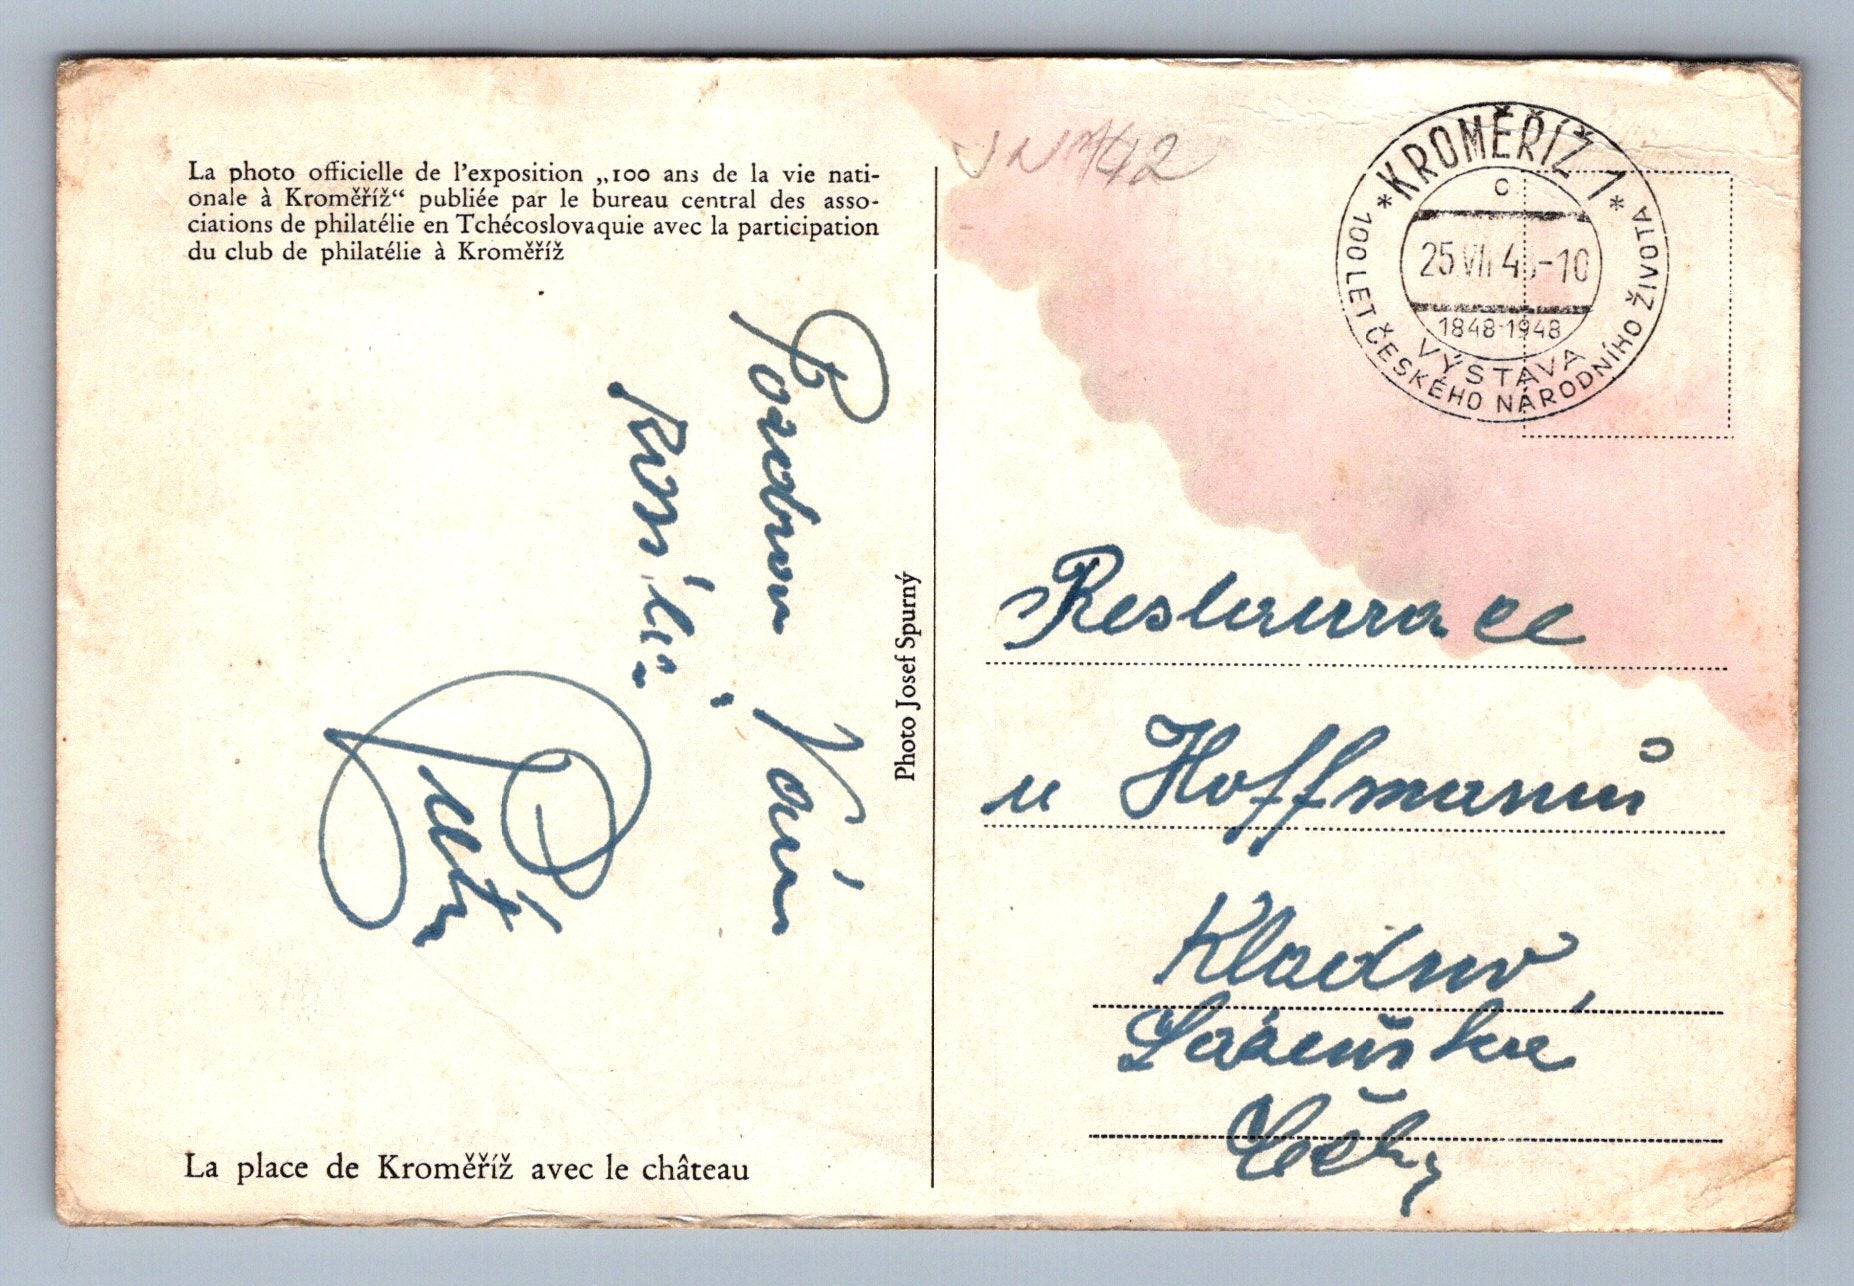 La photo officielle de l'exposition „100 ans de la vie nati-
onale à Kroměříž“ publiée par le bureau central des asso-
ciations de philatélie en Tchécoslovaquie avec la participation
du club de philatélie à Kroměříž
Pozdrav Vám
Petr
Photo Josef Spurný
La place de Kroměříž avec le château
42
* KROMĚŘÍŽ 1 *
C
25.VII.4 -10
1848-1948
VÝSTAVA
100 LET ČESKÉHO NÁRODNÍHO ŽIVOTA
Restaurace
u Hoffmanů
Kladno,
Čechy